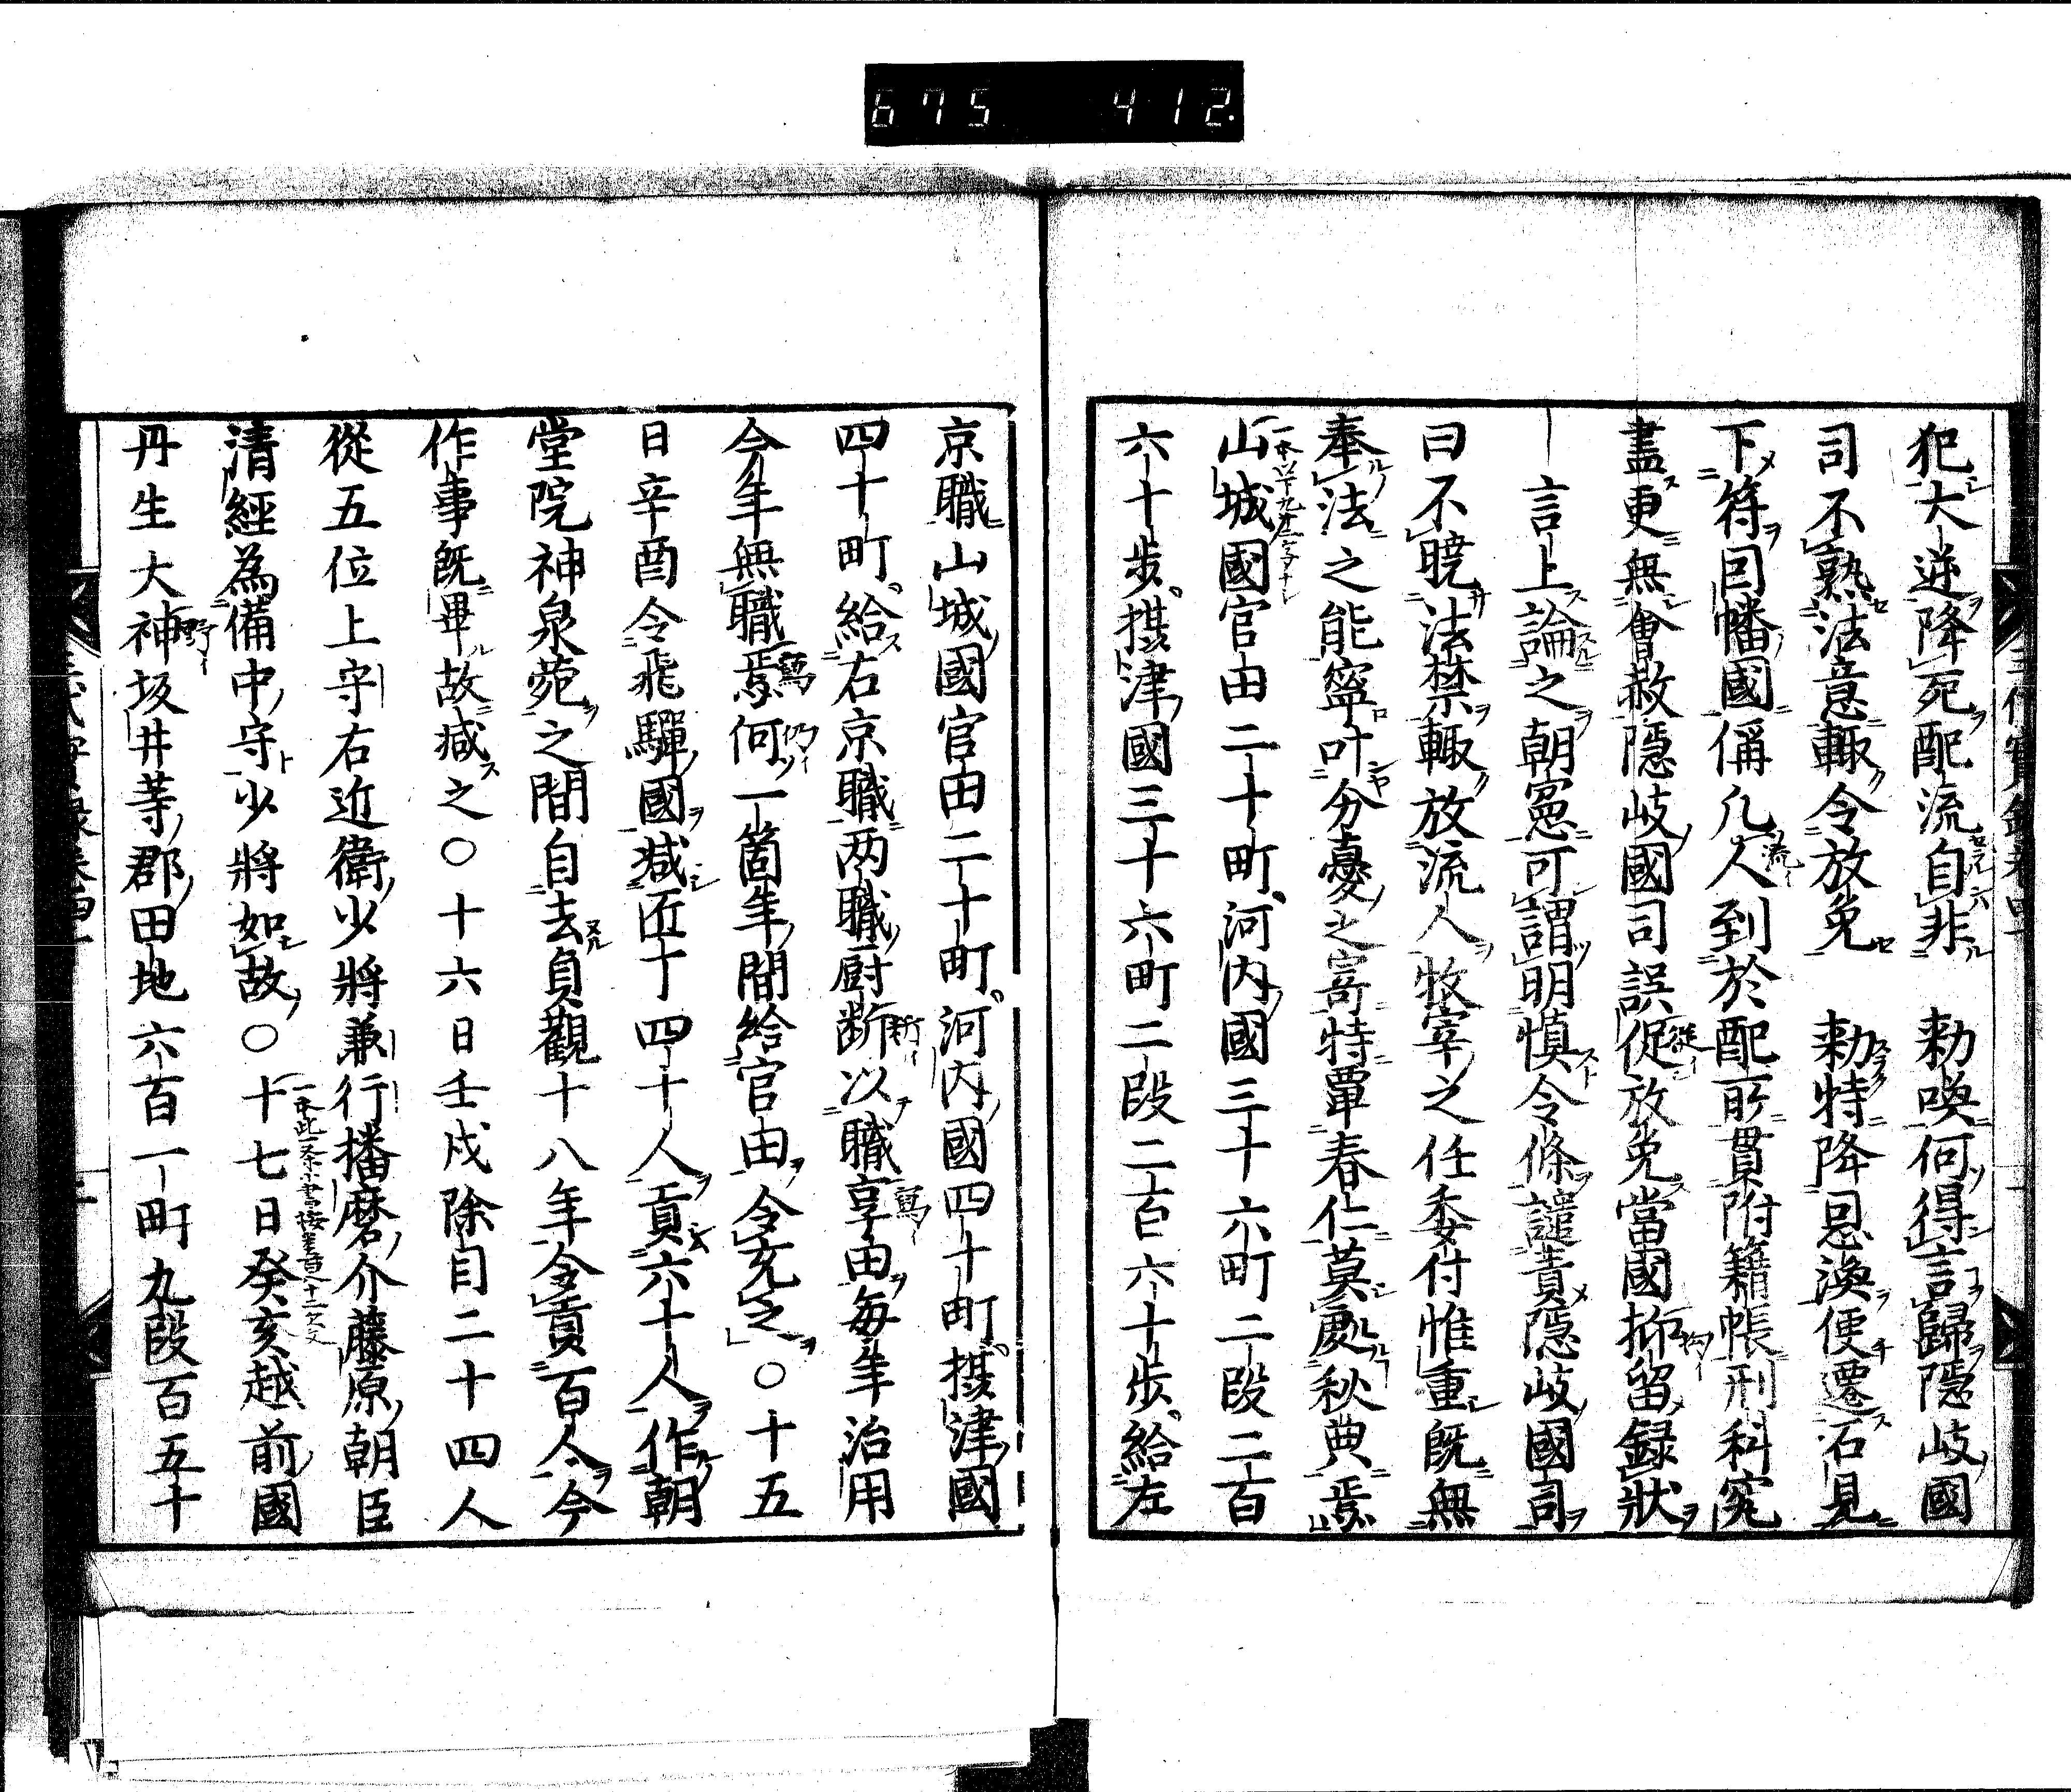 675 412.
犯大逆降死配流自非　勅喚何得言歸隱岐國
司不熟法意輙令放免　勅特降恩渙便遷石見
下符因幡國偁凡人到於配所貫附籍帳刑科究
盡更無會赦隱岐國司誤促放免當國抑留錄狀
言上論之朝憲可謂明慎令條譴責隱岐國司
曰不暁法禁輙放流人牧宰之任委付惟重既無
奉法之能寧叶分憂之寄特覃春仁莫處秋典焉
山城國官田二十町河内國三十六町二段二百
六十步攝津國三十六町二段二百六十步給左
京職山城國官田二十町河内國四十町攝津國
四十町給右京職两職厨断以職享田每年治用
今年無職焉何一箇年間給官田令充之○十五
日辛酉令飛驒國减匠丁四十人貢六十人作朝
堂院神泉苑之間自去貞觀十八年令貢百人今
作事既畢故减之○十六日壬戌除目二十四人
從五位上守右近衛少將兼行播磨介藤原朝臣
清經為備中守少將如故○十七日癸亥越前國
丹生大神坂井等郡田地六百一町九段百五十